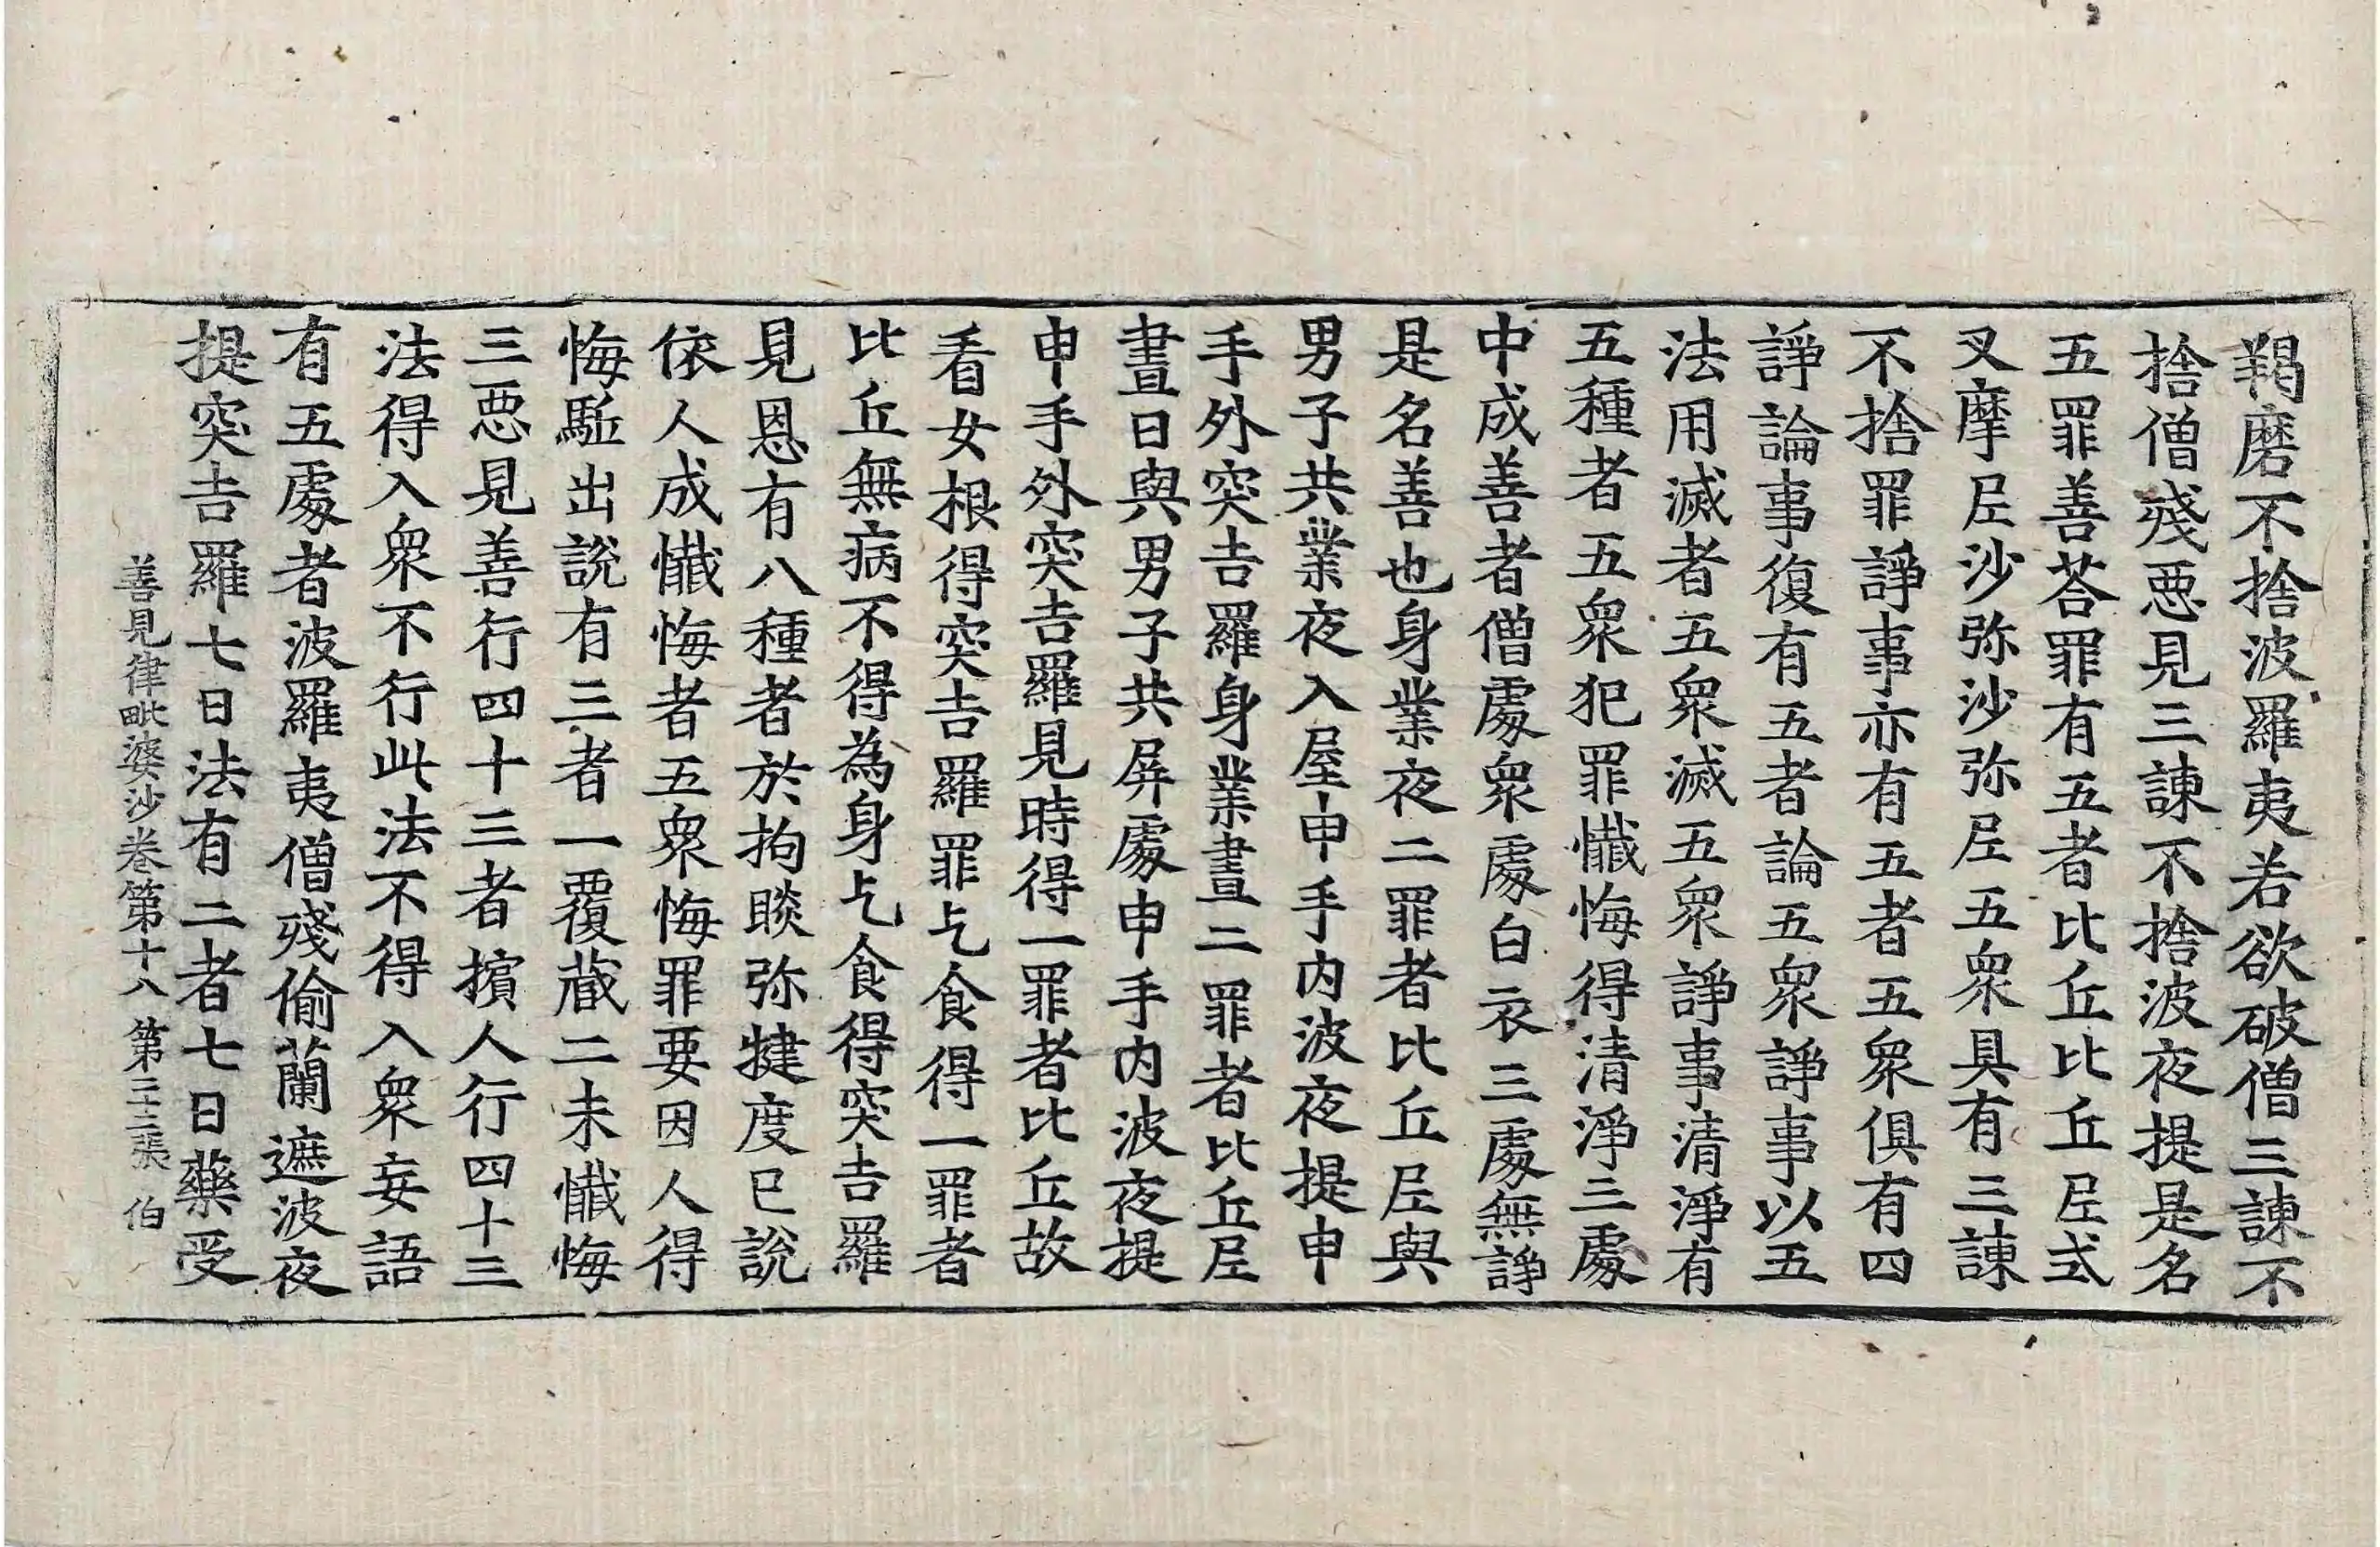 羯磨不捨波羅夷若欲破僧三諫不
捨僧殘惡見三諫不捨波夜提是名
五罪善荅罪有五者比丘比丘尼式
叉摩尼沙弥沙弥尼五衆具有三諫
不捨罪諍事亦有五者五衆俱有四
諍論事復有五者論五衆諍事以五
法用滅者五衆滅五衆諍事清淨有
五種者五衆犯罪懺悔得清淨三處
中成善者僧處衆處白衣三處無諍
是名善也身業夜二罪者比丘尼與
男子共業夜入屋申手内波夜提申
手外突吉羅身業晝二罪者比丘尼
晝日與男子共屏處申手内波夜提
申手外突吉羅見時得一罪者比丘故
看女根得突吉羅罪乞食得一罪者
比丘無病不得為身乞食得突吉羅
見恩有八種者於拘睒弥揵度已說
依人成懺悔者五衆悔罪要因人得
悔駈出說有三者一覆藏二未懺悔
三惡見善行四十三者擯人行四十三
法得入衆不行此法不得入衆妄語
有五處者波羅夷僧殘偷蘭遮波夜
提突吉羅七日法有二者七日藥受
善見律毗婆沙卷第十八 第三二張 伯